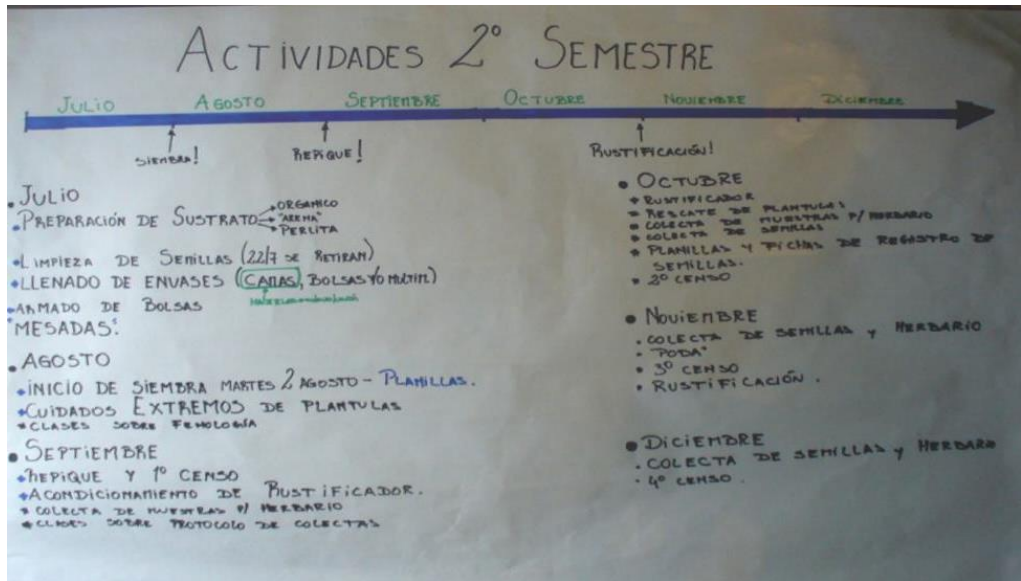 ACTIVIDADES 2º SEMESTRE
JULIO AGOSTO SEPTIEMBRE OCTUBRE NOVIEMBRE DICIEMBRE
SIEMBRA! REPIQUE! RUSTIFICACIÓN!
• JULIO
• PREPARACIÓN DE SUSTRATO → ORGANICO
→ "ARENA"
→ PERLITA
• LIMPIEZA DE SEMILLAS (22/7 SE RETIRAN)
• LLENADO DE ENVASES (CAÑAS, BOLSAS Y/O MULTIM.)
• ARMADO DE BOLSAS
"MESADAS".
• AGOSTO
• INICIO DE SIEMBRA MARTES 2 AGOSTO - PLANILLAS.
• CUIDADOS EXTREMOS DE PLANTULAS
• CLASES SOBRE FENOLOGÍA
• SEPTIEMBRE
• REPIQUE Y 1º CENSO
• ACONDICIONAMIENTO DE RUSTIFICADOR.
• COLECTA DE MUESTRAS P/ HERBARIO
• CLASES SOBRE PROTOCOLO DE COLECTAS
• OCTUBRE
• RUSTIFICADOR
• RESCATE DE PLANTULAS
• COLECTA DE MUESTRAS P/ HERBARIO
• COLECTA DE SEMILLAS
• PLANILLAS Y FICHAS DE REGISTRO DE
SEMILLAS.
• 2º CENSO
• NOVIEMBRE
• COLECTA DE SEMILLAS Y HERBARIO
• "PODA"
• 3º CENSO
• RUSTIFICACIÓN.
• DICIEMBRE
• COLECTA DE SEMILLAS Y HERBARIO
• 4º CENSO.